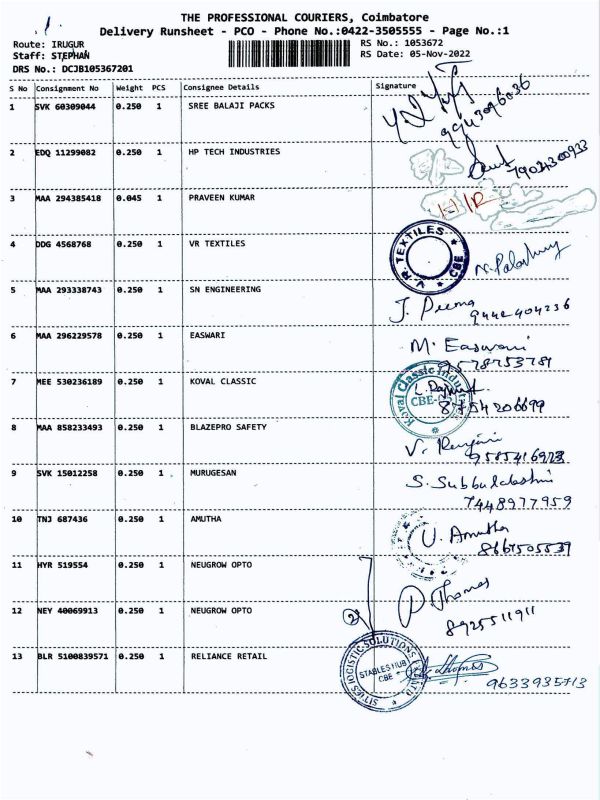 THE PROFESSIONAL COURIERS, Coimbatore
Delivery Runsheet - PCO - Phone No.:0422-3505555 - Page No.:1
Route: IRUGUR
RS No.: 1053672
Staff: STEPHAN
RS Date: 05-Nov-2022
DRS No.: DCJB105367201
S No Consignment No Weight PCS Consignee Details Signature
1 SVK 60309044 0.250 1 SREE BALAJI PACKS
2 EDQ 11299082 0.250 1 HP TECH INDUSTRIES
3 MAA 294385418 0.045 1 PRAVEEN KUMAR
4 DDG 4568768 0.250 1 VR TEXTILES
V.R TEXTILES CBE
5 MAA 293338743 0.250 1 SN ENGINEERING J. Prema
9442404236
6 MAA 296229578 0.250 1 EASWARI M. Easwari
9578753781
7 MEE 530236189 0.250 1 KOVAL CLASSIC
Koval Classic Indu CBE
8754206699
8 MAA 858233493 0.250 1 BLAZEPRO SAFETY V. Renjini
9 SVK 15012258 0.250 1 MURUGESAN S. Subbulakshmi
7448977959
10 TNJ 687436 0.250 1 AMUTHA U. Amutha
8667505539
11 HYR 519554 0.250 1 NEUGROW OPTO
P. Thomas
12 NEY 40069913 0.250 1 NEUGROW OPTO
8925511911
13 BLR 5100839571 0.250 1 RELIANCE RETAIL
LOGISTIC SOLUTIONS
STABLES HUB
CBE
Thomas
9633935713